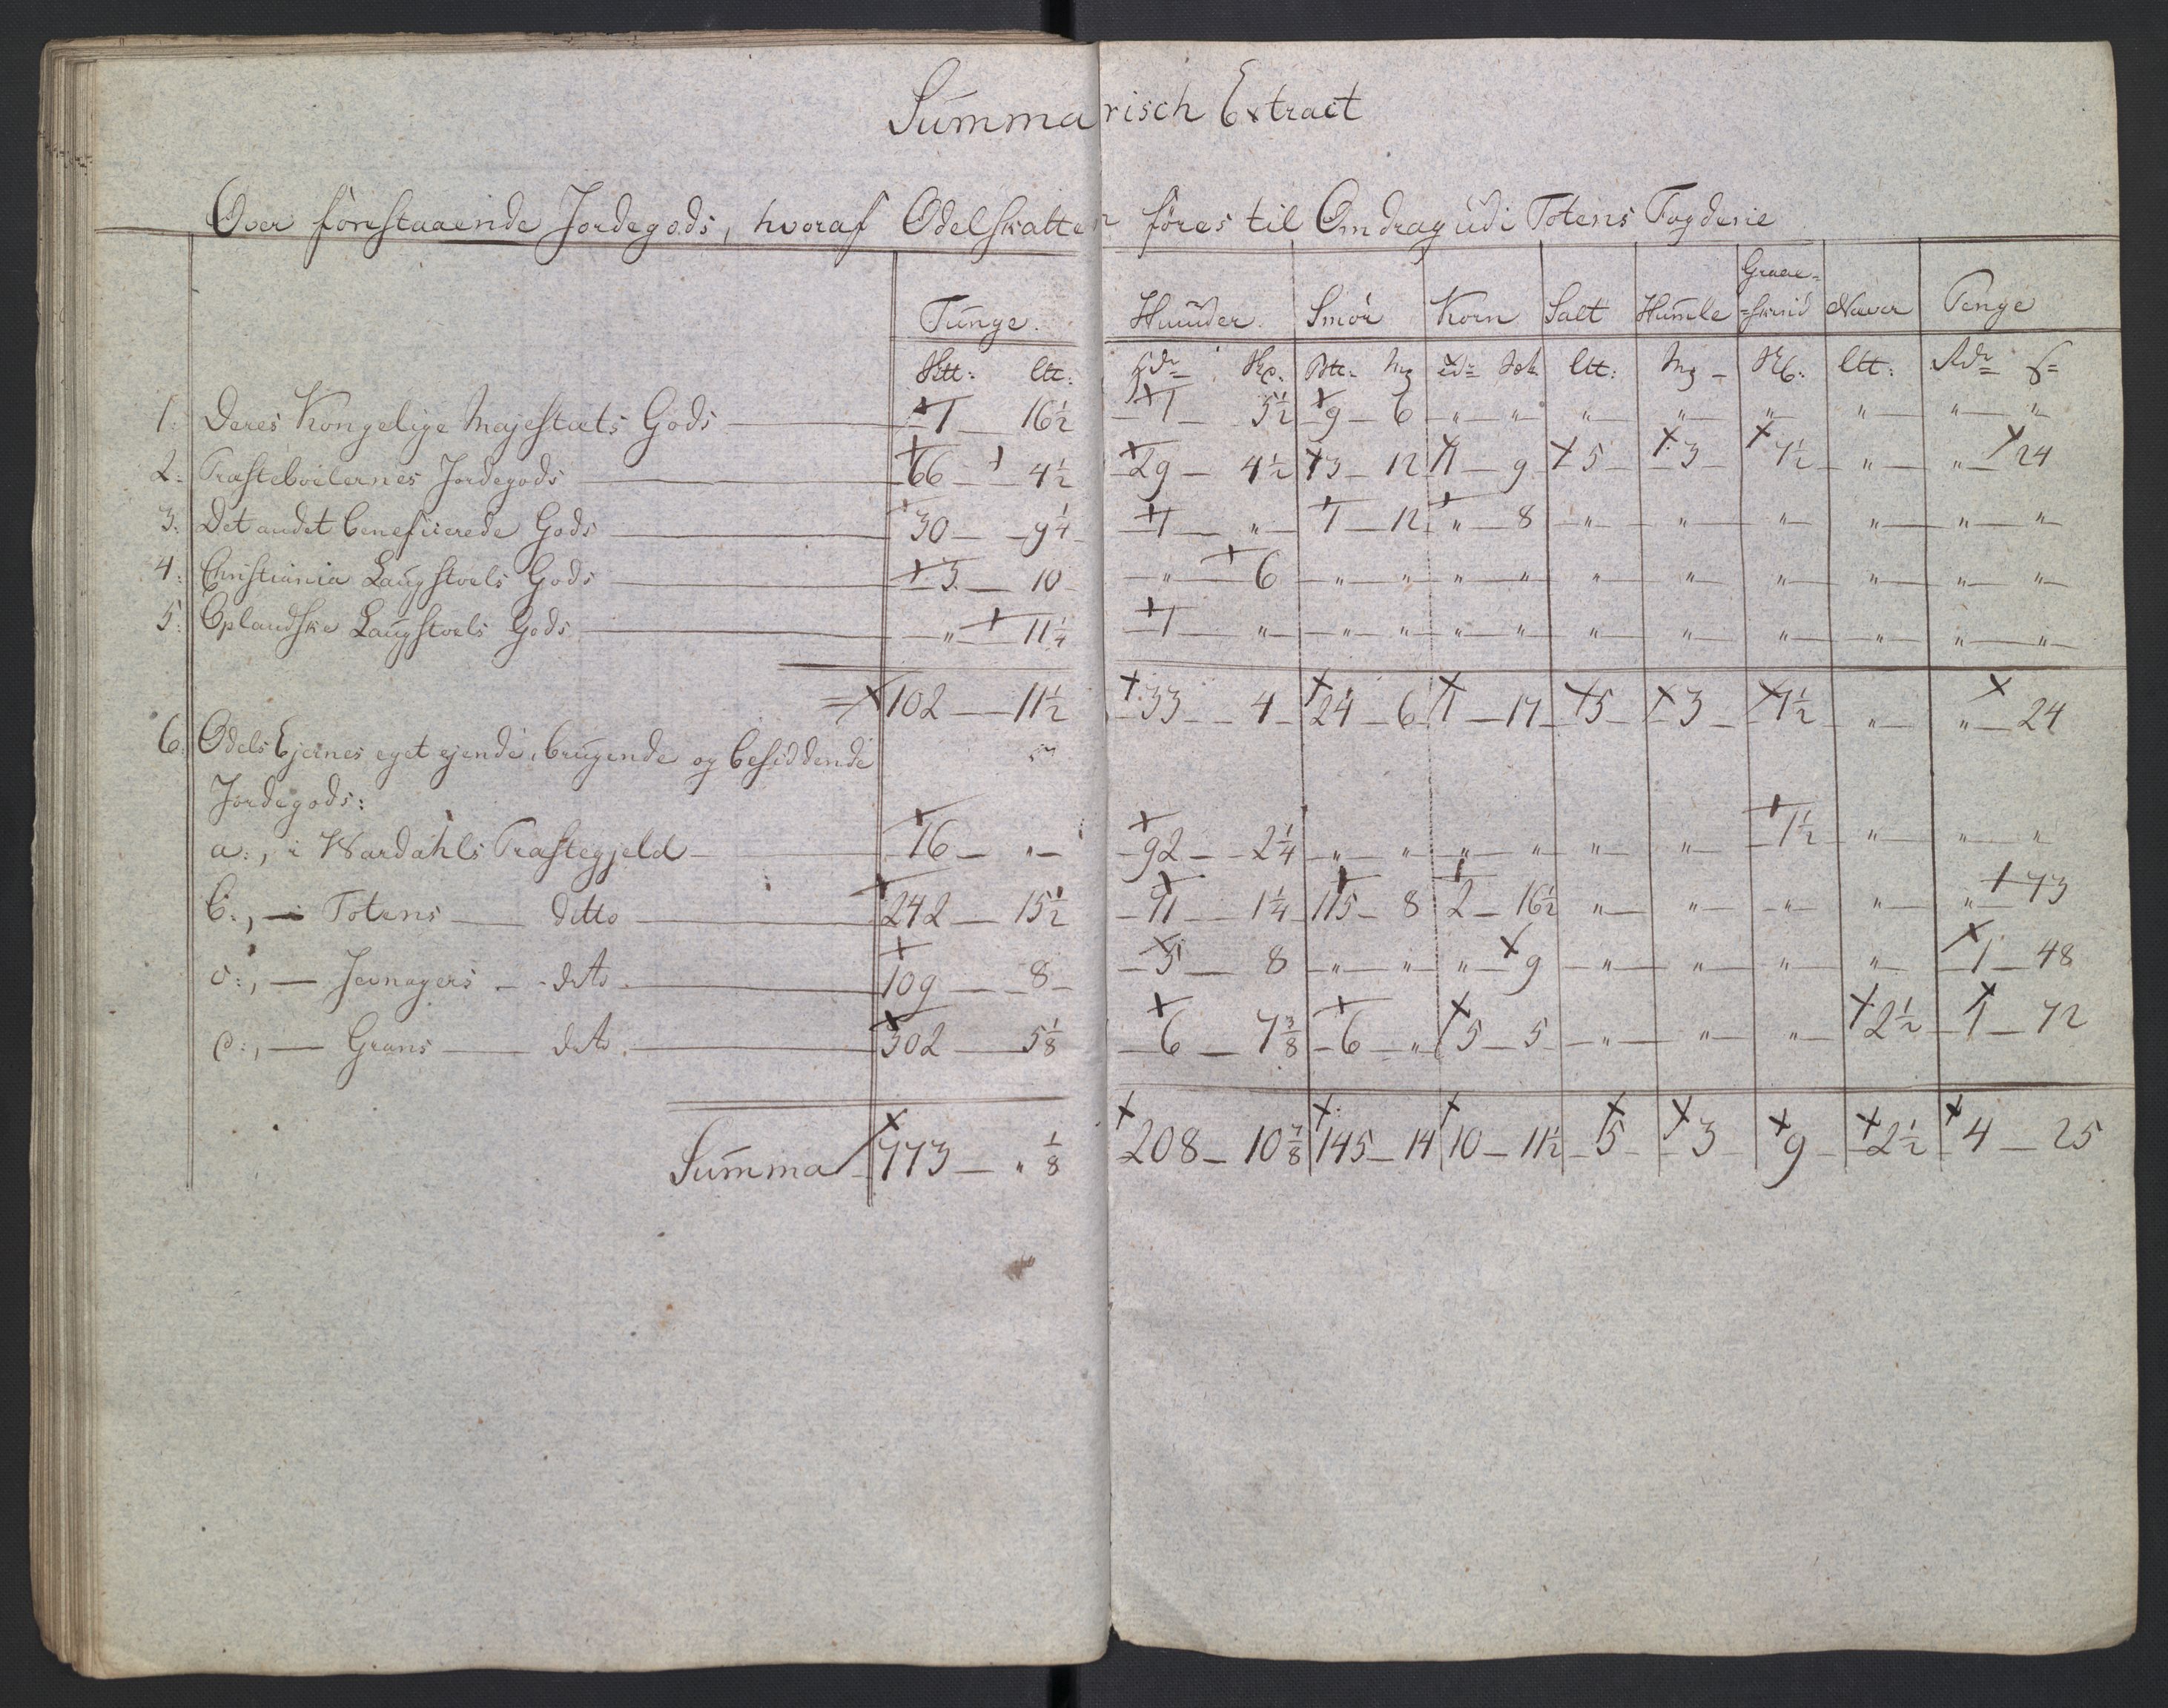 Summarisch Extract
Over forestaaende Jordegods, hvoraf Odelskatten föres til Omdrag udi Totens Fogderie
Tunge. Huuder. Smör Korn Salt Humle Graae=skind Næver Penge
Ltt: Hdr Btt: Mg Ltt: Mg Ltt: Rdr
1: Deres Kongelige Majestæts Gods 1 16½ 1 5½ 9 6 " " " " " " " "
2: Præsteboelernes Jordegods 66 4½ 29 4½ 13 12 1 9 5 3 7½ " " 24
3: Det andet beneficerede Gods 30 9¼ 1 " 1 12 " 8 " " " " " "
4: Christiania Laugstoels Gods 3 10 " 6 " " " " " " " " " "
5: Oplandske Laugstoels Gods " 11¼ 1 " " " " " " " " " " "
102 11½ 33 4 24 6 1 17 5 3 7½ " " 24
6: Odels Ejernes eget ejende, brugende og besiddende
Jordegods:
a:, i Wardahls Præstegjeld 16 " 92 2¼ " " " " " " 1½ " " "
b:, — i Totens — ditto 242 15½ 71 1¼ 115 8 2 16½ " " " " " 73
c:, — Jevnagers — dito 109 8 5 8 " " " 9 " " " " 1 48
d:, — Grans — dito 302 5⅛ 6 7⅜ 6 " 5 5 " " " 2½ 1 72
Summa 773 " ⅛ 208 10⅞ 145 14 10 11½ 5 3 9 2½ 4 25